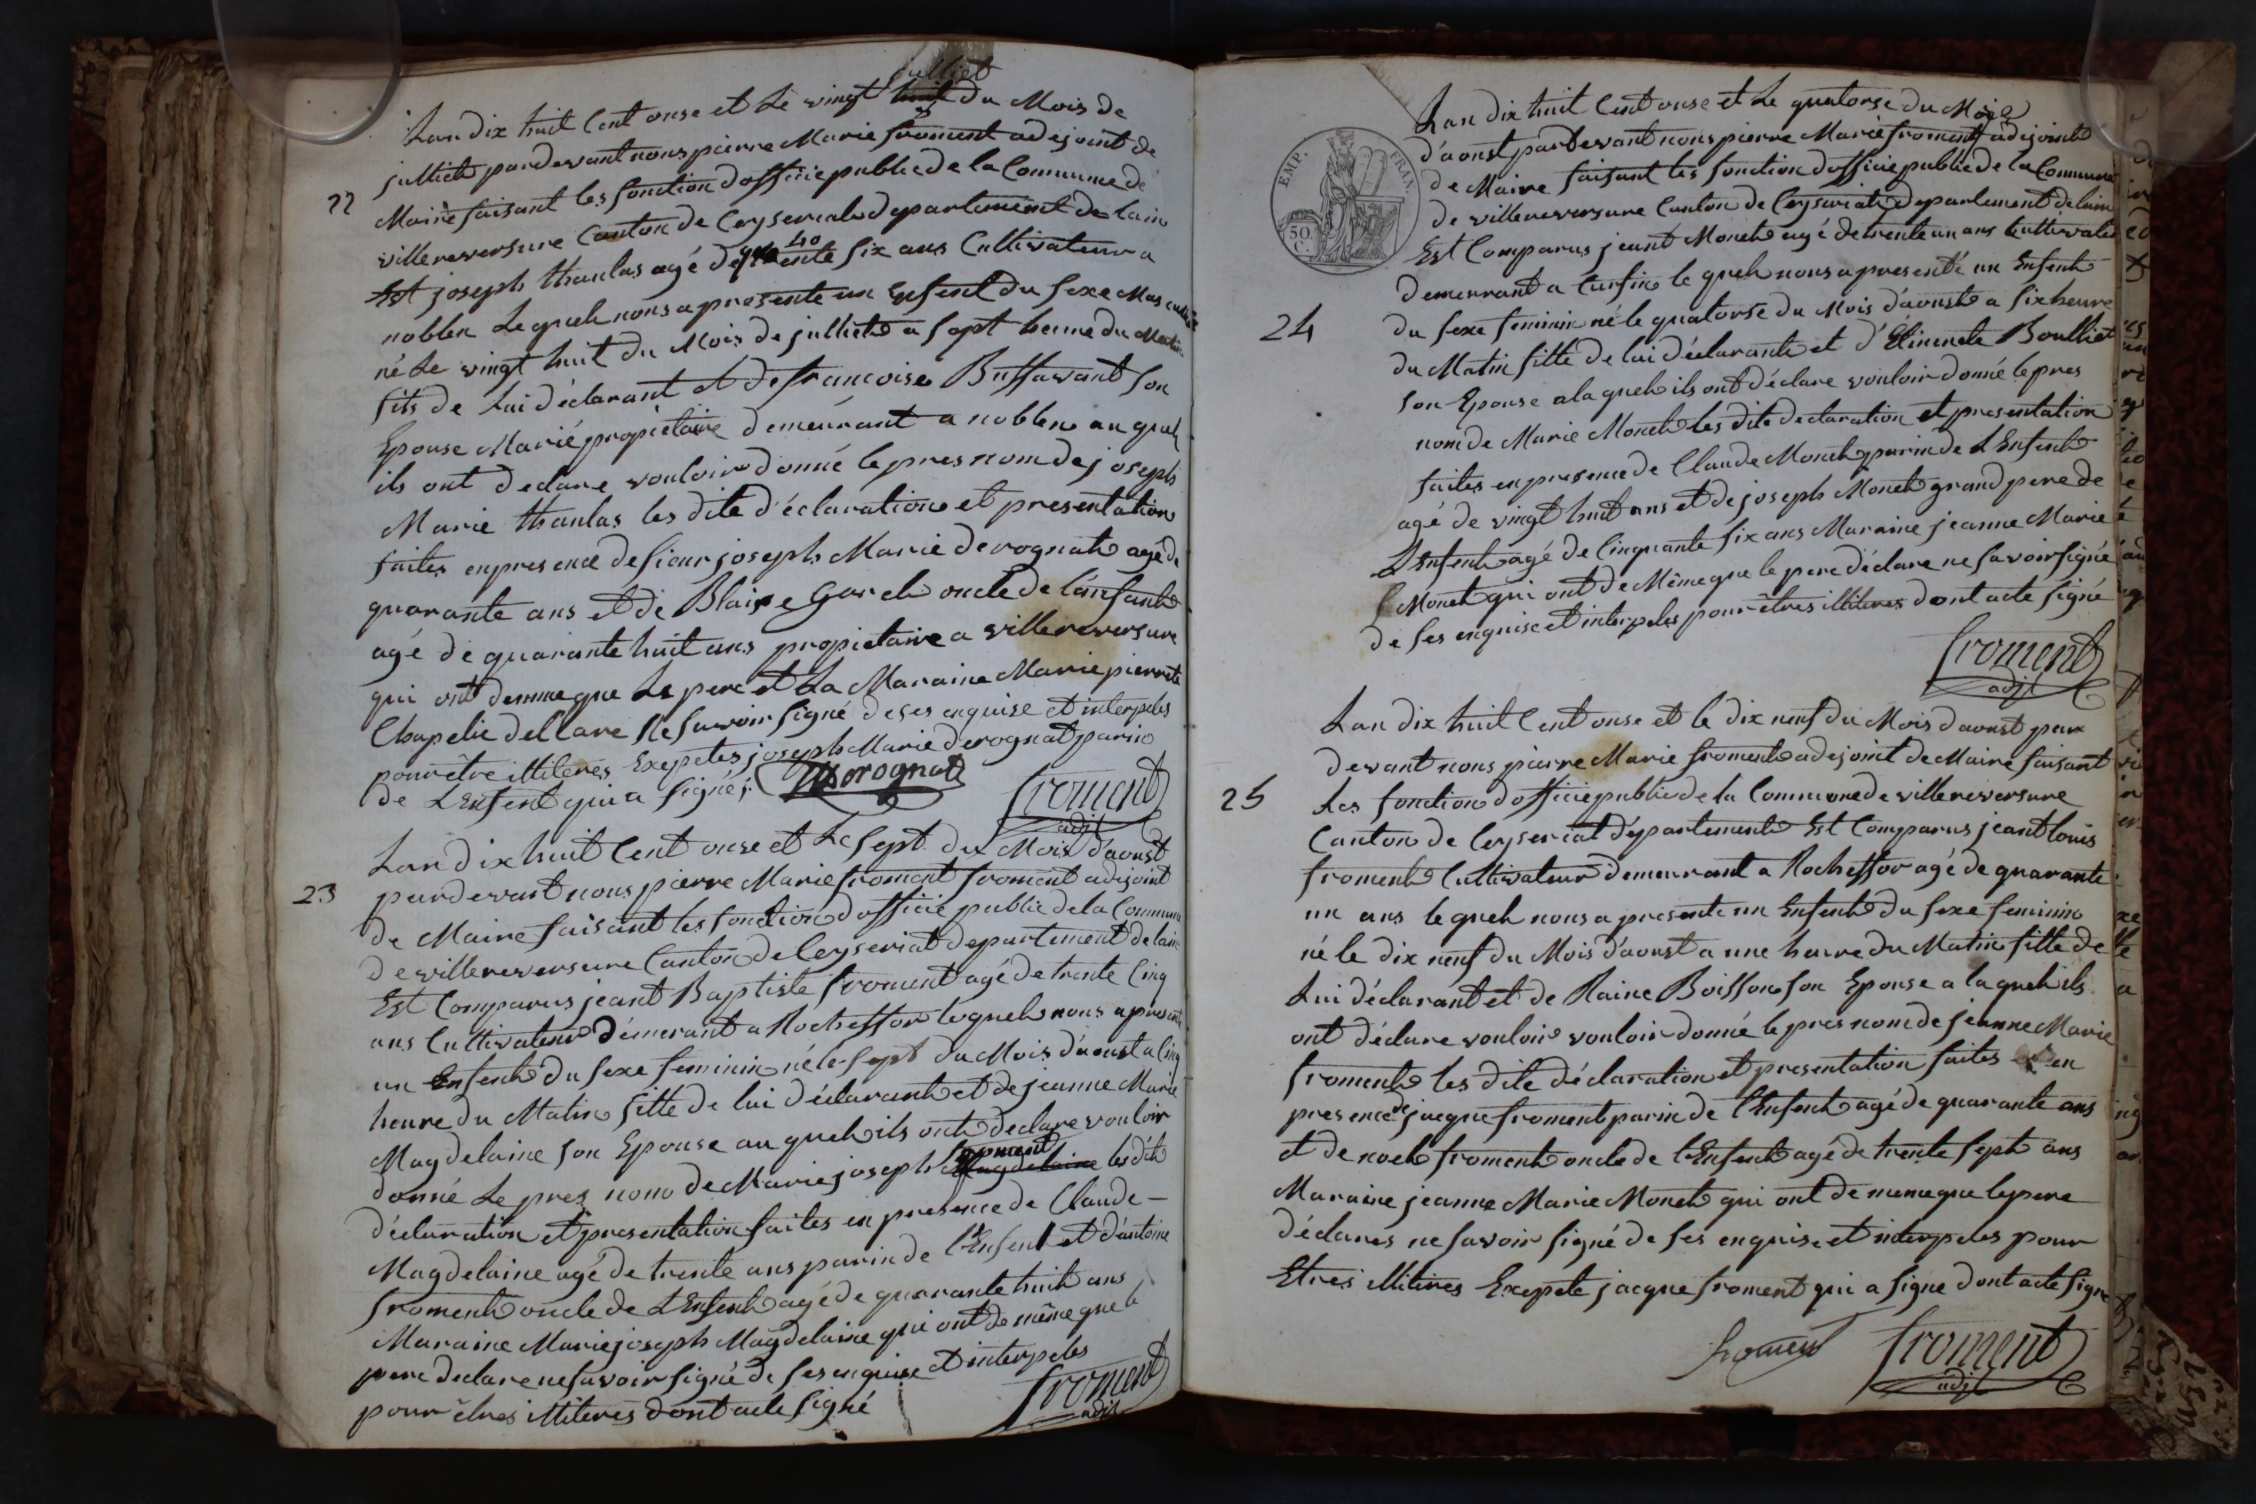 julliet
Lan dix huit Cent onse et Le vingt huit du Mois de
julliet pardevant nous pierre Marie froment adejoint de
22
Maire faisant les fonction dofficie public de la Commune de
villereversure Canton de Ceyseriat departement de lain
40
Est joseph thaulas agé de quarente six ans Cultivateur a
noblen Le quel nous a presente un Enfent du sexe Masculin
né Le vingt huit du Mois de julliet a sept heure du Matin
fils de Lui déclarant et de francoise Buffavant son
Epouse Marié propietaire demeurant a noblen au quel
ils ont declare vouloir donné le pres nom de joseph
Marie thaulas les dite déclaration et presentation
faites en presence de sieur joseph Marie derognat agé de
quarante ans et de Blaise Garel oncle de lanfant
agé de quarante huit ans propietaire a villereversure
qui ont demme que Le pere et La Maraine Marie pierrete
Chapelie dellare Ne savoir signé deses enquise et interpeles
pour être illiteres Exepetes joseph Marie derognat parin
de LEnfent qui a signés. Derognat
froment
adjt
Lan dix huit Cent onse et Le sept du Mois daoust
23
pardevant nous pierre Marie froment froment adejoint
de Maire faisant les fonction dofficie public dela Commune
de villereversure Canton de Ceyseriat departement de lain
Est Comparus jeant Baptiste froment agé de trente Cinq
ans Cultivateur démerant a Rocheffor le quel nous a presente
un Enfent du sexe feminin né le sept du Mois daoust a Cinq
heure du Matin fille de lui déclarant et de jeanne Marie
Magdelaine son Epouse au quel ils ont declare vouloir
froment
donné Le pres nom de Marie joseph Magdelaine les dite
déclaration et presentation faites en presence de Claude
Magdelaine agé de trente ans parin de l'Enfent et d'antoine
froment oncle de LEnfent agé de quarante huit ans
Maraine Marie joseph Magdelaine qui ont de même que le
pere declare ne savoir signé de ses enquise et interpeles
pour êtres illiteres dont acte signé
froment
adjt
EMP. FRAN.
50 C.
Lan dix huit Cent onse et Le quatorse du Mois
d'aoust pardevant nous pierre Marie froment adejoint
de Maire faisant les fonction dofficie public de la Commune
de villereversure Canton de Ceyseriat departement de lain
Est Comparus jeant Monet agé de trente un ans Cultivateur
demeurant a Cursin le quel nous a presenté un Enfent
24
du sexe feminin né le quatorse du Mois daoust a six heure
du Matin fille de lui déclarant et d'Elinete Boulliet
son Epouse ala quel ils ont déclare vouloir donné le pres
nom de Marie Monet les dite declaration et presentation
faites en presence de Claude Monet parin de LEnfent
agé de vingt huit ans et de joseph Monet grand pere de
LEnfent agé de Cinquante six ans Maraine jeanne Marie
Monet qui ont de Même que le pere déclare ne savoir signé
de ses enquise et interpeles pour êtres illiteres dont acte signé
froment
adjt
Lan dix huit Cent onse et le dix neuf du Mois daoust par
devant nous pierre Marie froment adejoint de Maire faisant
25
Les fonction dofficie public de la Commune de villereversure
Canton de Ceyseriat département Est Comparus jeant louis
froment Cultivateur demeurant a Rocheffor agé de quarante
un ans le quel nous a presente un Enfent du sexe feminin
né le dix neuf du Mois d'aoust a une heure du Matin fille de
Lui déclarant et de Raine Boisson son Epouse a la quel ils
ont déclare vouloir vouloir donné le pres nom de jeanne Marie
froment les dite déclaration et presentation faites en
presence de jacque froment parin de l'Enfent agé de quarante ans
et de noel froment oncle de l'Enfent agé de trente sept ans
Maraine jeanne Marie Monet qui ont de meme que le pere
déclares ne savoir signé de ses enquise et interpeles pour
Etres illitires Exepete jacque froment qui a signe dont acte signe
froment froment
adjt